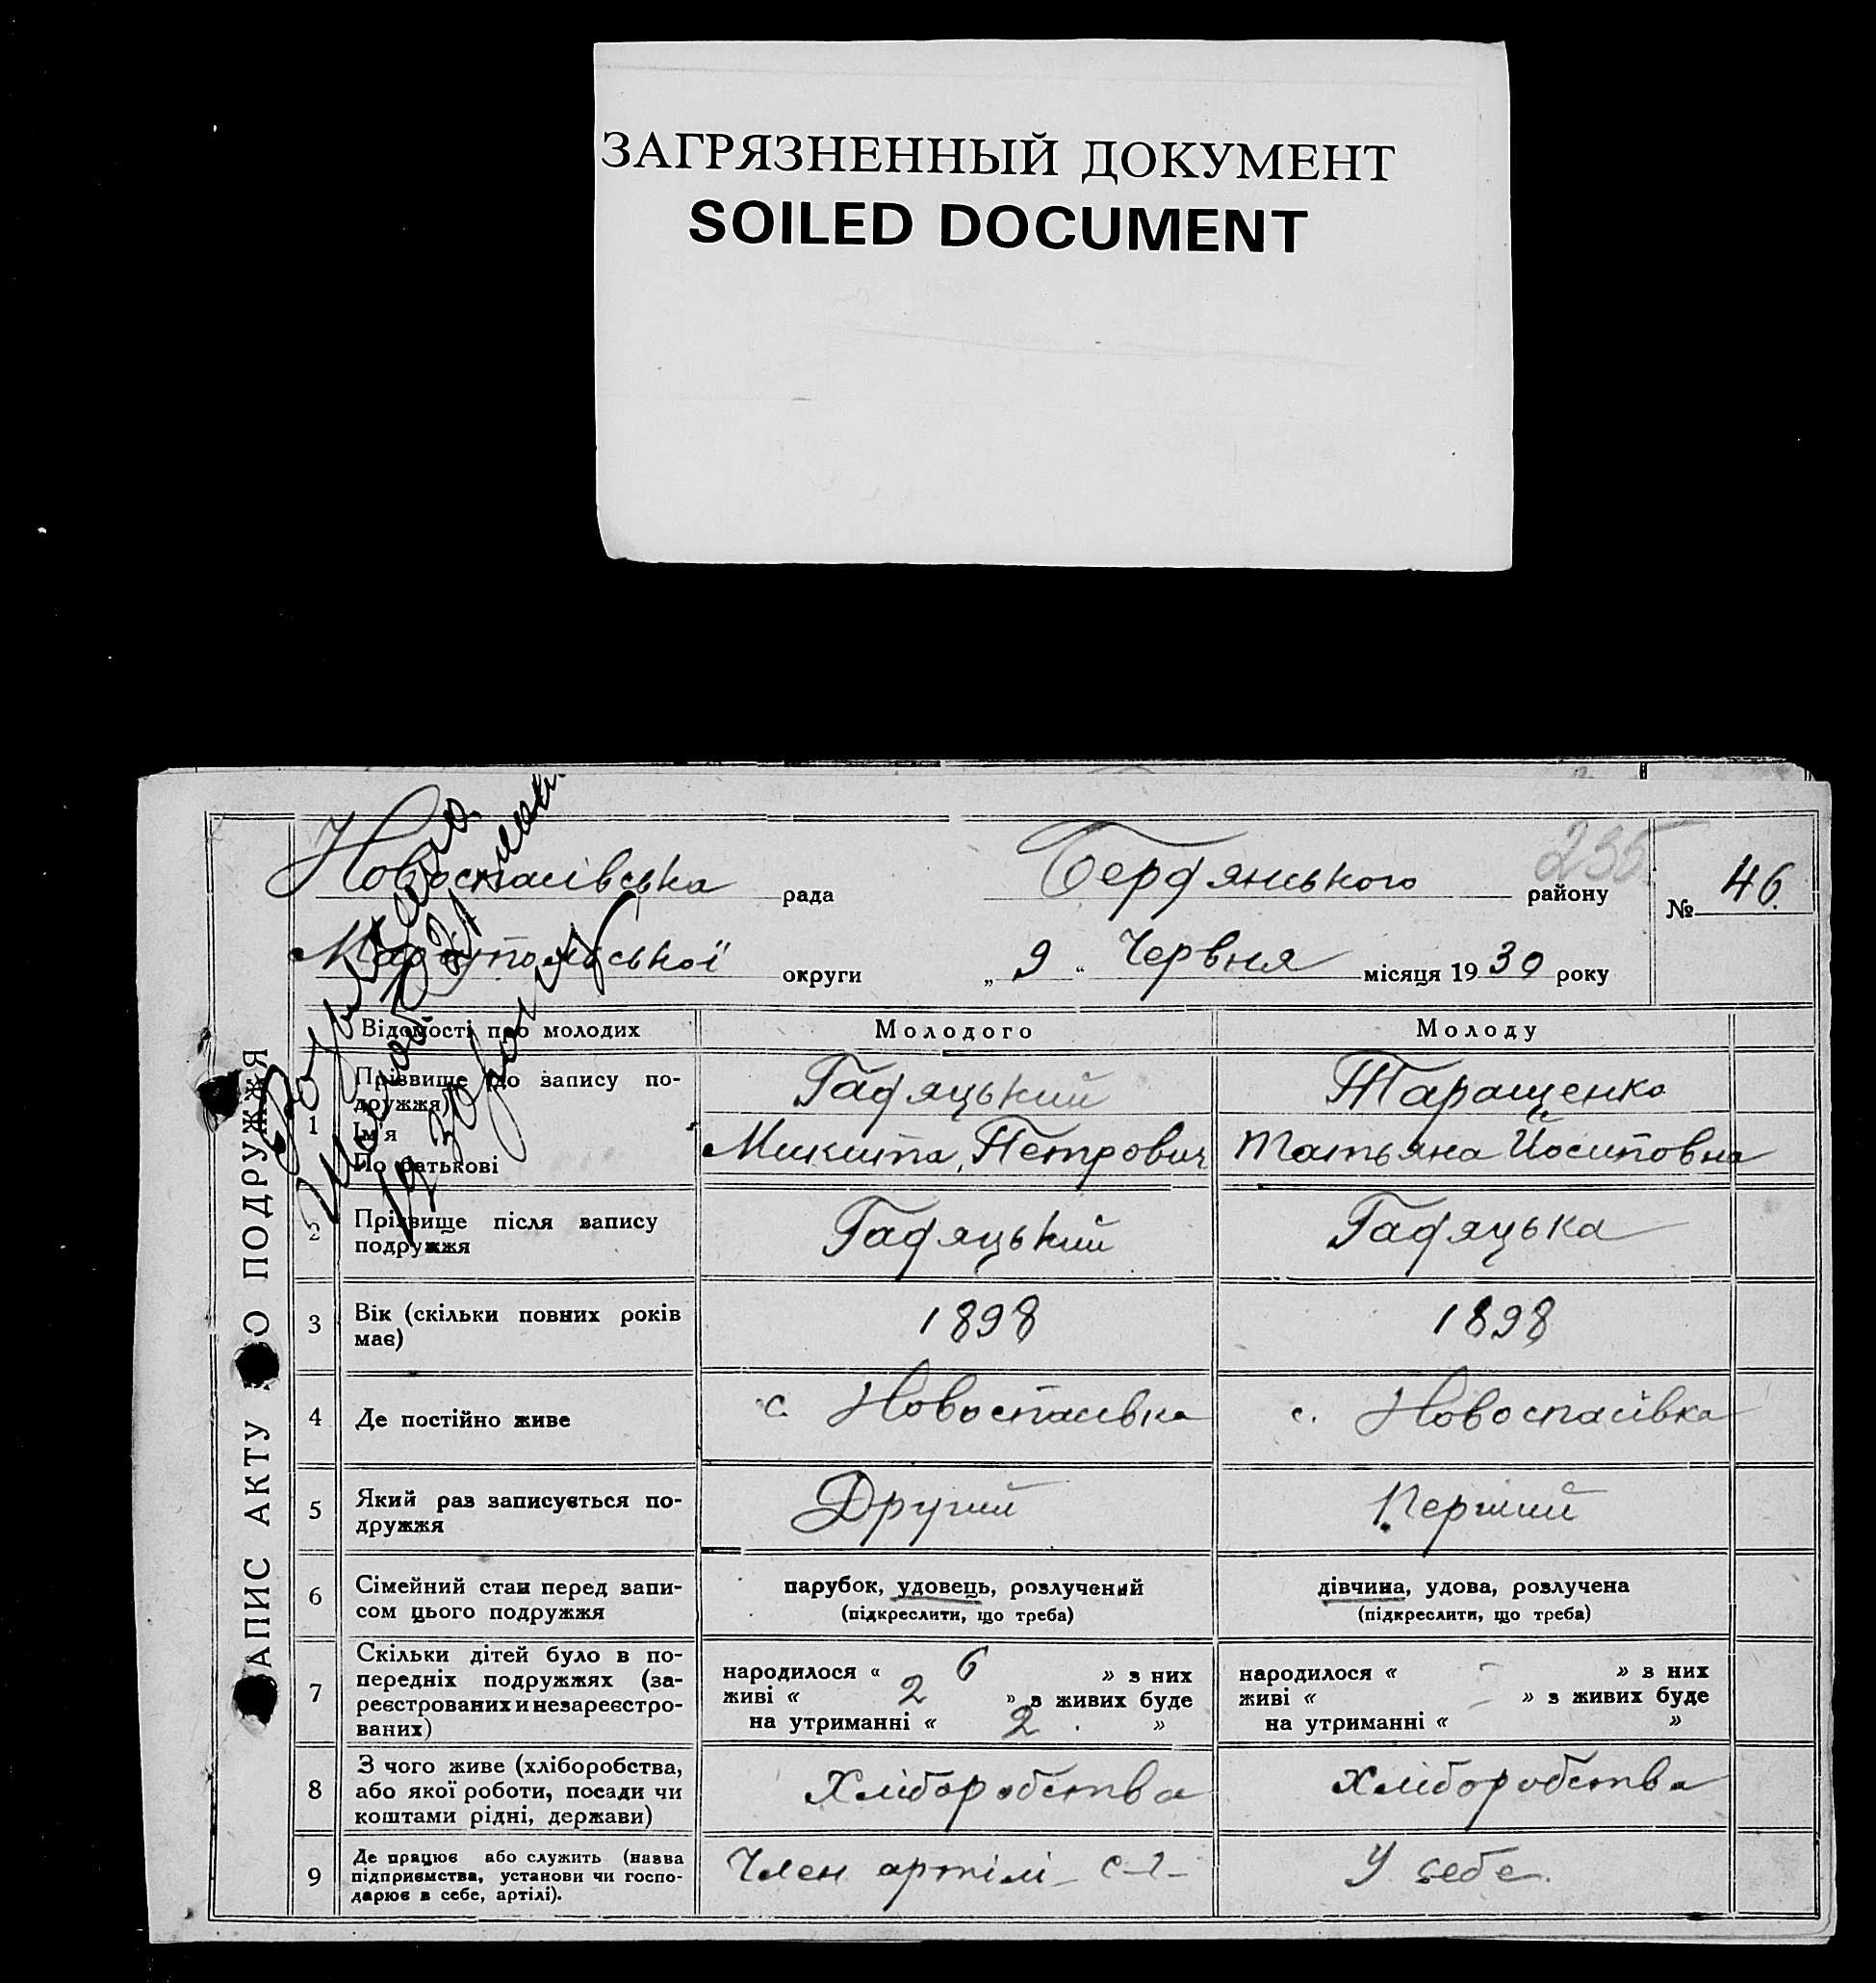 ЗАГРЯЗНЕННЫЙ ДОКУМЕНТ
SOILED DOCUMENT
235
Новоспасівська рада Бердянського району № 46.
Маріупольської округи „ 9 “ Червня місяця 1930 року
ЗАПИС АКТУ ПРО ПОДРУЖЖЯ
Відомості про молодих Молодого Молоду
1 Прізвище (до запису по-
дружжя) Гадяцький Таращенко
Ім'я
По батькові Микита Петрович Татьяна Йосиповна
2 Прізвище після запису
подружжя Гадяцький Гадяцька
3 Вік (скільки повних років
має) 1898 1898
4 Де постійно живе с. Новоспасівка с. Новоспасівка
5 Який раз записується по-
дружжя Другий Перший
6 Сімейний стан перед запи-
сом цього подружжя парубок, удовець, розлучений дівчина, удова, розлучена
(підкреслити, що треба) (підкреслити, що треба)
7 Скільки дітей було в по-
передніх подружжях (за-
реєстрованих и незареєстро-
ваних)
народилося « 6 » з них народилося « - » з них
живі « 2 » з живих буде живі « - » з живих буде
на утриманні « 2 » на утриманні « »
8 З чого живе (хліборобства,
або якої роботи, посади чи
коштами рідні, держави) Хліборобства Хліборобства
9 Де працює або служить (назва
підприємства, установи чи госпо-
дарює в себе, артілі). Член артілі с-г- У себе.